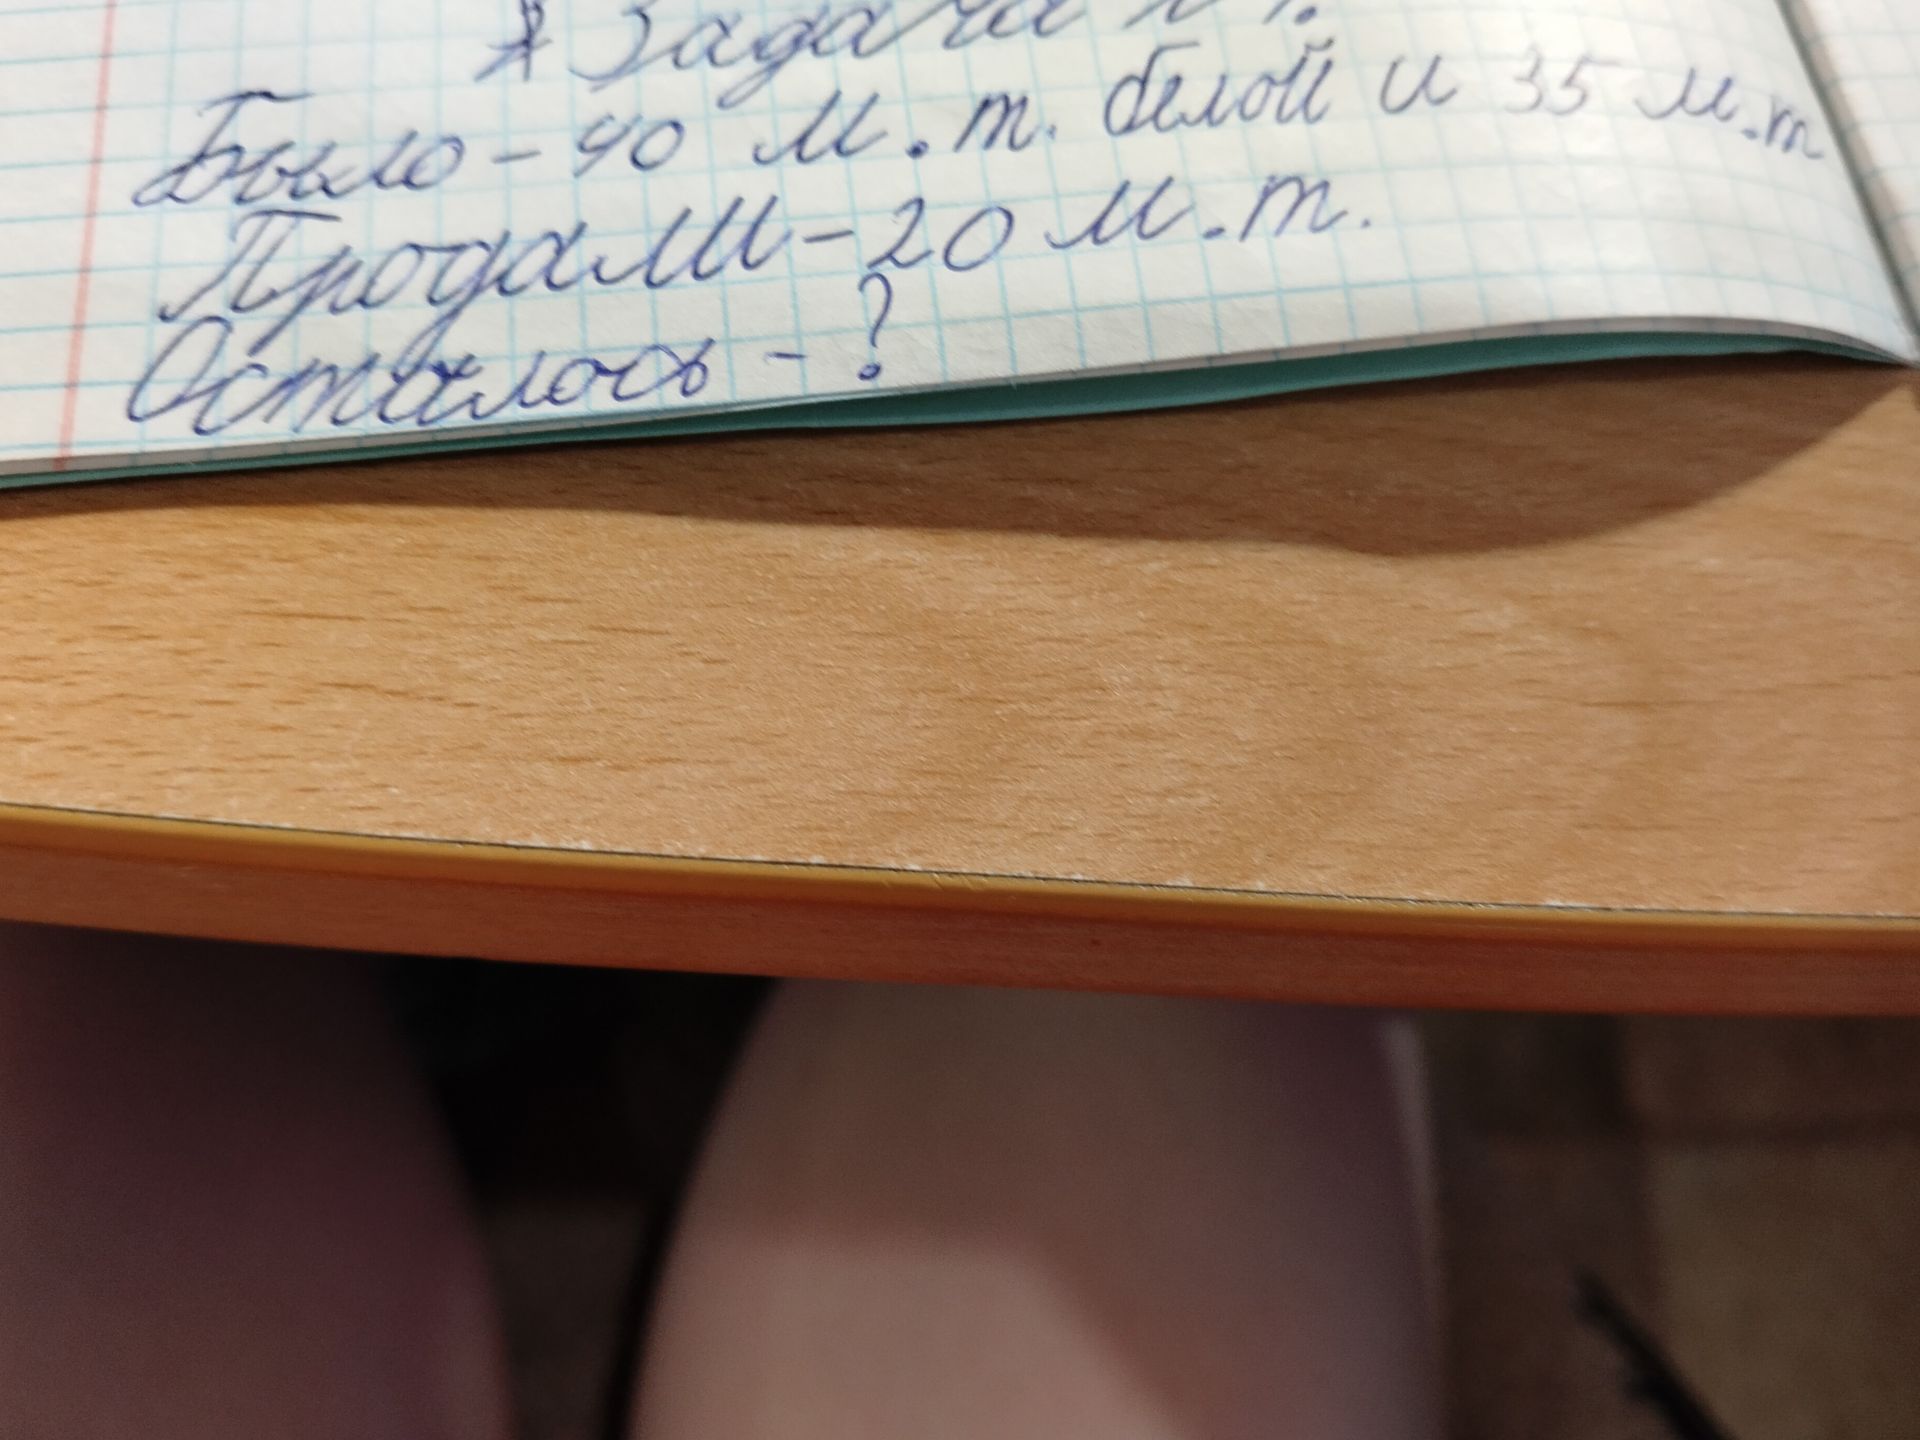 Задача № 1.
Было - 40 м.т. белой и 35 м.т
Продали - 20 м.т.
Осталось - ?